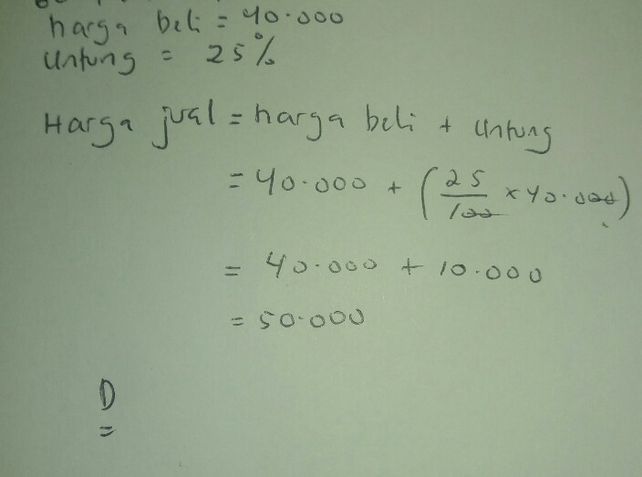 harga beli = 40.000
Untung = 25%
Harga jual = harga beli + Untung
= 40.000 + (25/100 x 40.000)
= 40.000 + 10.000
= 50.000
D
=